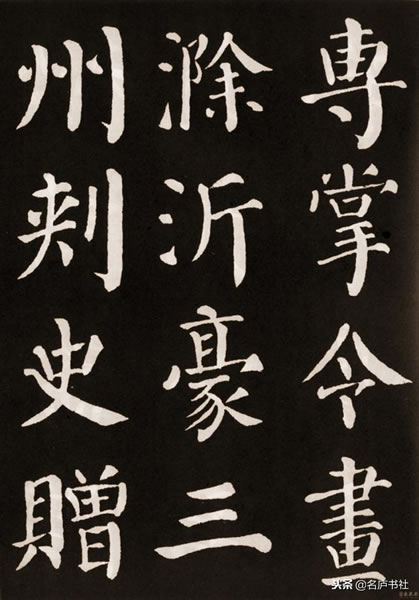 專掌令畫
滁沂豪三
州刺史贈
头条 @名庐书社